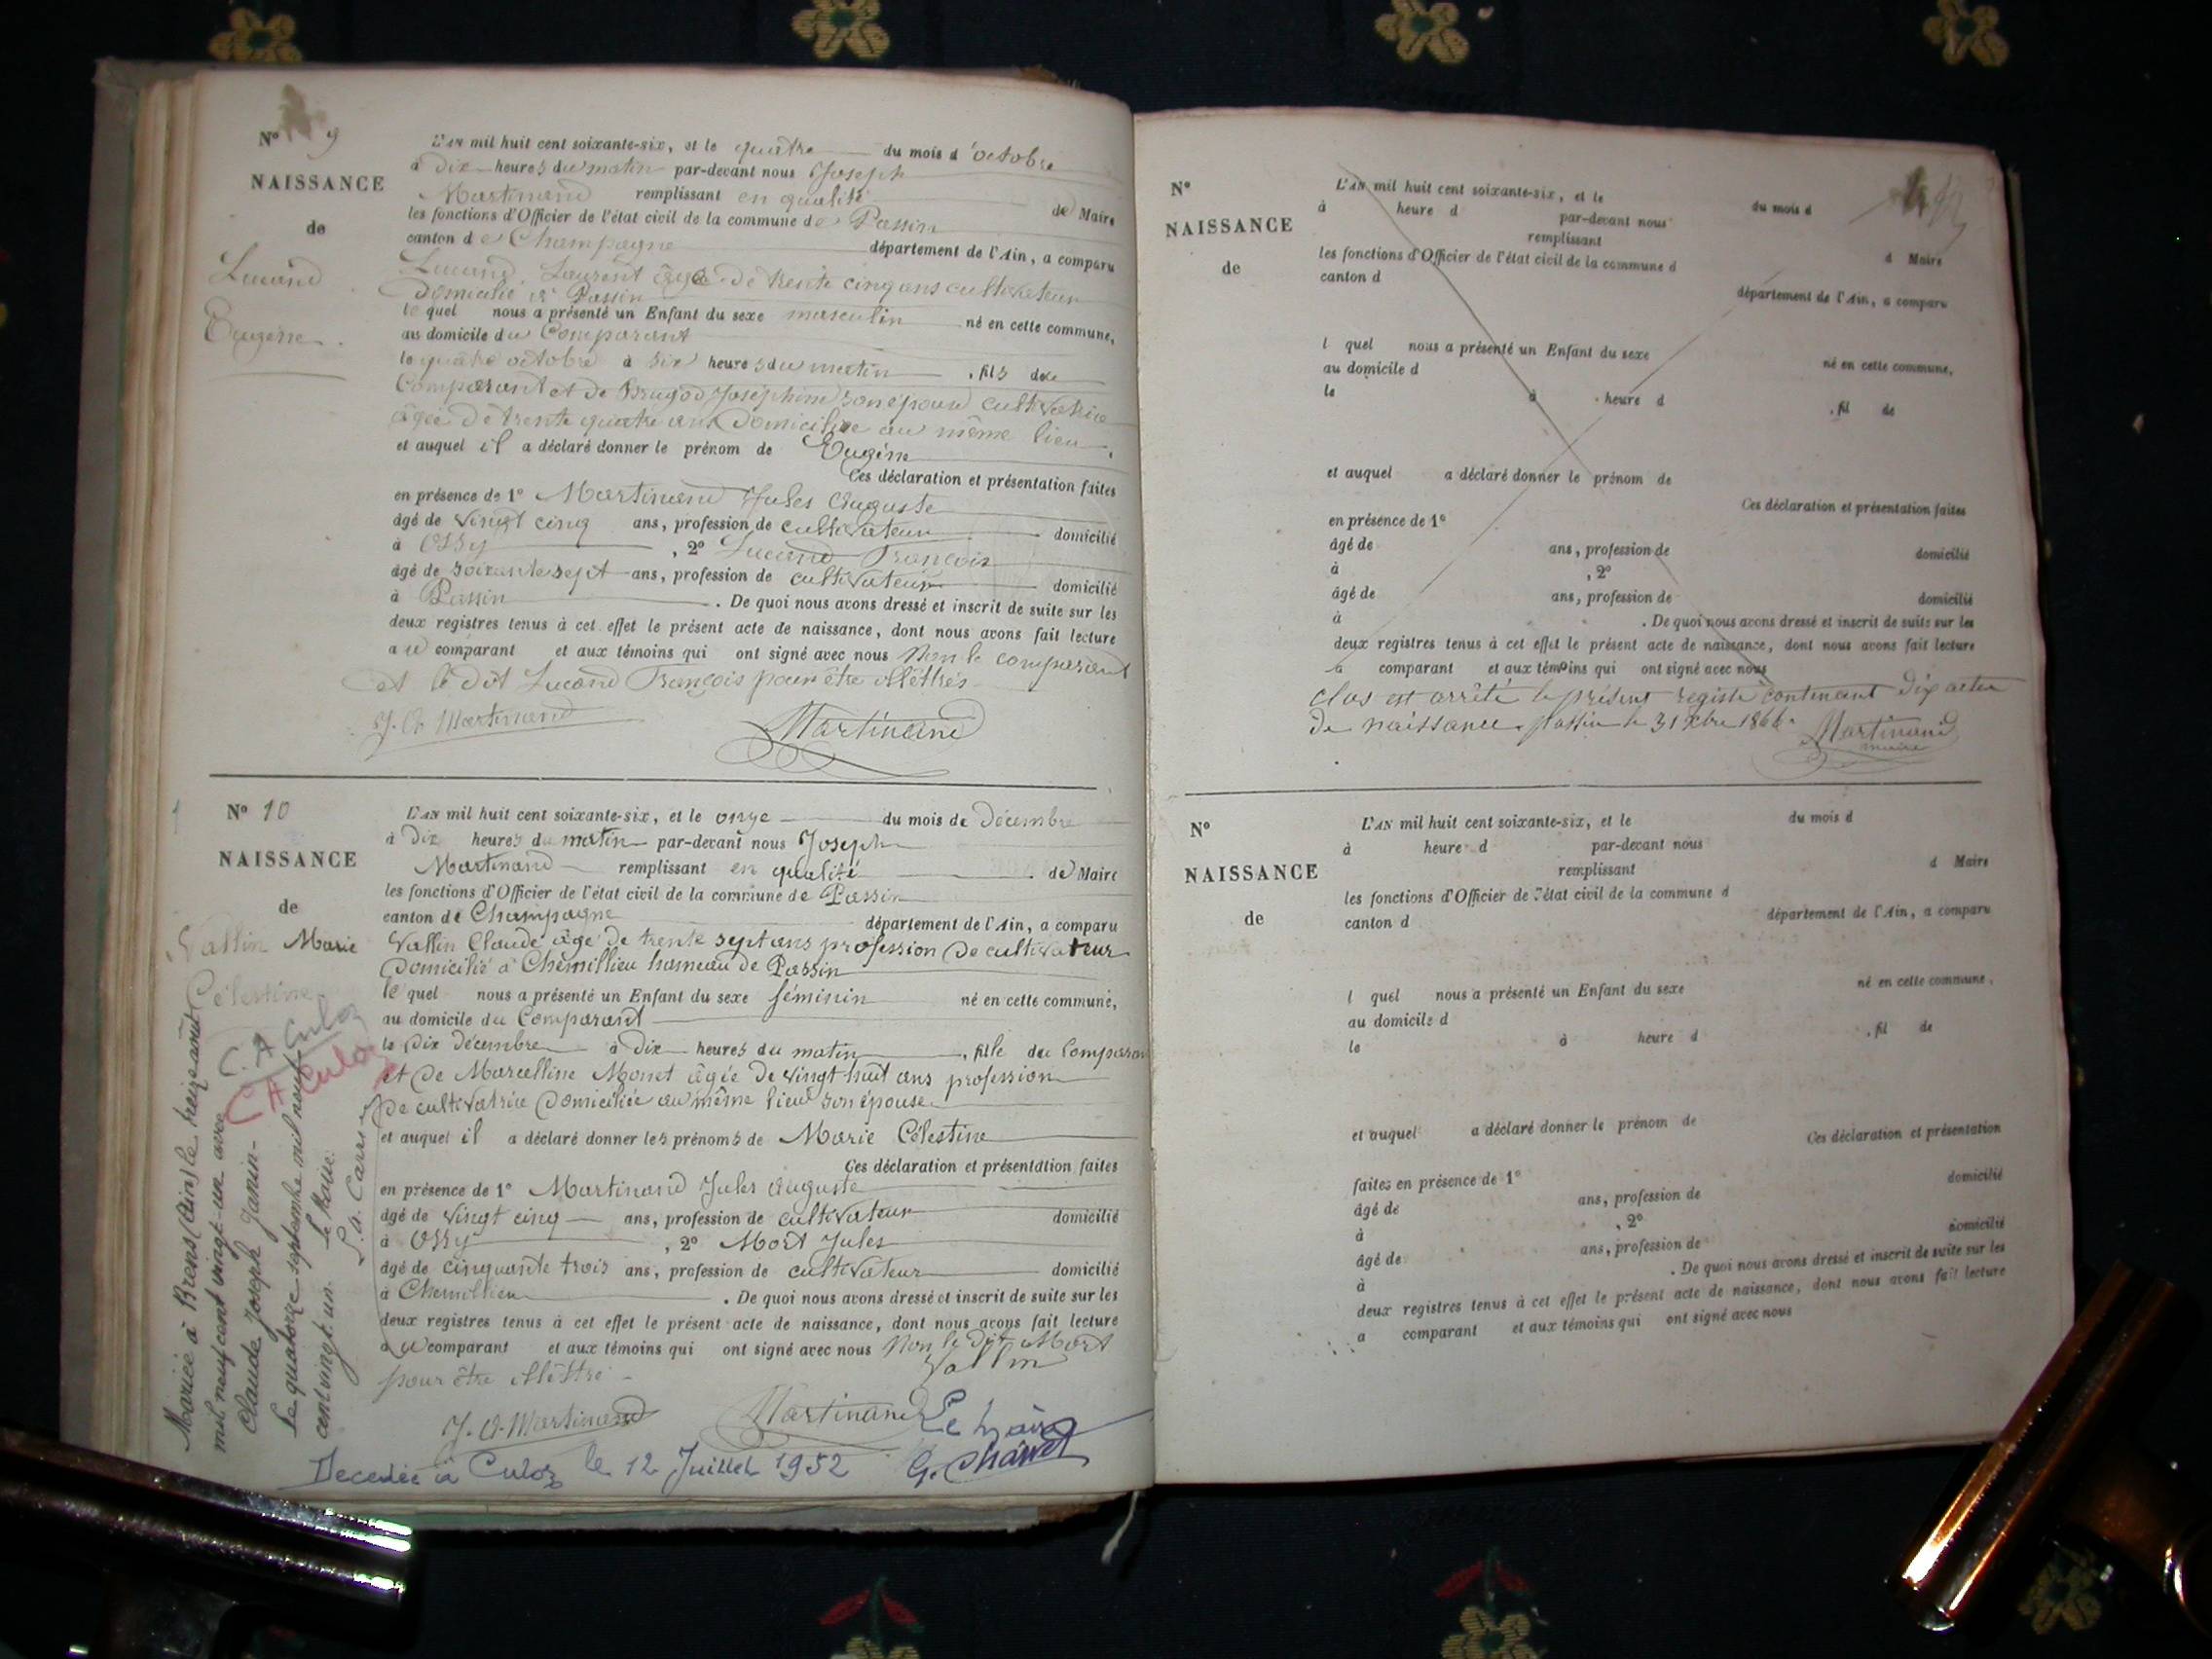 N° 9
NAISSANCE
de
Lucand
Eugène
L'AN mil huit cent soixante-six, et le quatre du mois d'octobre
à dix heures du matin par-devant nous Joseph
Martinand remplissant en qualité de Maire
les fonctions d'Officier de l'état civil de la commune de Passin
canton de Champagne département de l'Ain, a comparu
Lucand Laurent âgé de trente cinq ans cultivateur
domicilié à Passin
le quel nous a présenté un Enfant du sexe masculin né en cette commune,
au domicile du Comparant
le quatre octobre à six heures du matin, fils du
Comparant et de Joséphine son épouse cultivatrice
âgée de trente quatre ans domiciliée au même lieu
et auquel il a déclaré donner le prénom de Eugène
Ces déclaration et présentation faites
en présence de 1° Martinand Jules Auguste
âgé de vingt cinq ans, profession de cultivateur domicilié
à Ossy, 2° Lucand François
âgé de soixante sept ans, profession de cultivateur domicilié
à Passin. De quoi nous avons dressé et inscrit de suite sur les
deux registres tenus à cet effet le présent acte de naissance, dont nous avons fait lecture
au comparant et aux témoins qui ont signé avec nous Non le comparant
et le dit Lucand François pour être illettrés
J. A. Martinand Martinand
N° 10
NAISSANCE
de
Vallin Marie
Célestine
C. A Culoz
C A Culoz
Mariée à Brens (Ain) le treize août
mil neuf cent vingt-un avec
Claude Joseph Janin-
Le quatorze septembre mil neuf
cent vingt-un. Le Maire
L'AN mil huit cent soixante-six, et le onze du mois de Décembre
à Dix heures du matin par-devant nous Joseph
Martinand remplissant en qualité de Maire
les fonctions d'Officier de l'état civil de la commune de Passin
canton de Champagne département de l'Ain, a comparu
Vallin Claude âgé de trente sept ans profession de cultivateur
Domicilié à Chemillieu hameau de Passin
le quel nous a présenté un Enfant du sexe féminin né en cette commune,
au domicile du Comparant
le Dix Décembre à Dix heures du matin, fille du Comparant
et de Marcelline Monet âgée de vingt huit ans profession
de cultivatrice Domiciliée au même lieu son épouse
et auquel il a déclaré donner les prénoms de Marie Célestine
Ces déclaration et présentation faites
en présence de 1° Martinand Jules Auguste
âgé de vingt cinq ans, profession de cultivateur domicilié
à Ossy, 2° Mort Jules
âgé de cinquante trois ans, profession de cultivateur domicilié
à Chemillieu. De quoi nous avons dressé et inscrit de suite sur les
deux registres tenus à cet effet le présent acte de naissance, dont nous avons fait lecture
au comparant et aux témoins qui ont signé avec nous Non le dit Mort
pour être illettré Vallin
J. A. Martinand Martinand Le Maire
Decedée à Culoz le 12 Juillet 1952
N°
NAISSANCE
de
L'AN mil huit cent soixante-six, et le du mois d
à heure d par-devant nous
remplissant d Maire
les fonctions d'Officier de l'état civil de la commune d
canton d département de l'Ain, a comparu
l quel nous a présenté un Enfant du sexe né en cette commune,
au domicile d
le à heure d , fil de
et auquel a déclaré donner le prénom de
Ces déclaration et présentation faites
en présence de 1°
âgé de ans, profession de domicilié
à , 2°
âgé de ans, profession de domicilié
à . De quoi nous avons dressé et inscrit de suite sur les
deux registres tenus à cet effet le présent acte de naissance, dont nous avons fait lecture
a comparant et aux témoins qui ont signé avec nous
Clos et arrêté le présent registre contenant Dix actes
de naissance. Passin le 31 Xbre 1866. Martinand
maire
N°
NAISSANCE
de
L'AN mil huit cent soixante-six, et le du mois d
à heure d par-devant nous
remplissant d Maire
les fonctions d'Officier de l'état civil de la commune d
canton d département de l'Ain, a comparu
l quel nous a présenté un Enfant du sexe né en cette commune,
au domicile d
le à heure d , fil de
et auquel a déclaré donner le prénom de
Ces déclaration et présentation
faites en présence de 1°
âgé de ans, profession de domicilié
à , 2°
âgé de ans, profession de domicilié
à . De quoi nous avons dressé et inscrit de suite sur les
deux registres tenus à cet effet le présent acte de naissance, dont nous avons fait lecture
a comparant et aux témoins qui ont signé avec nous